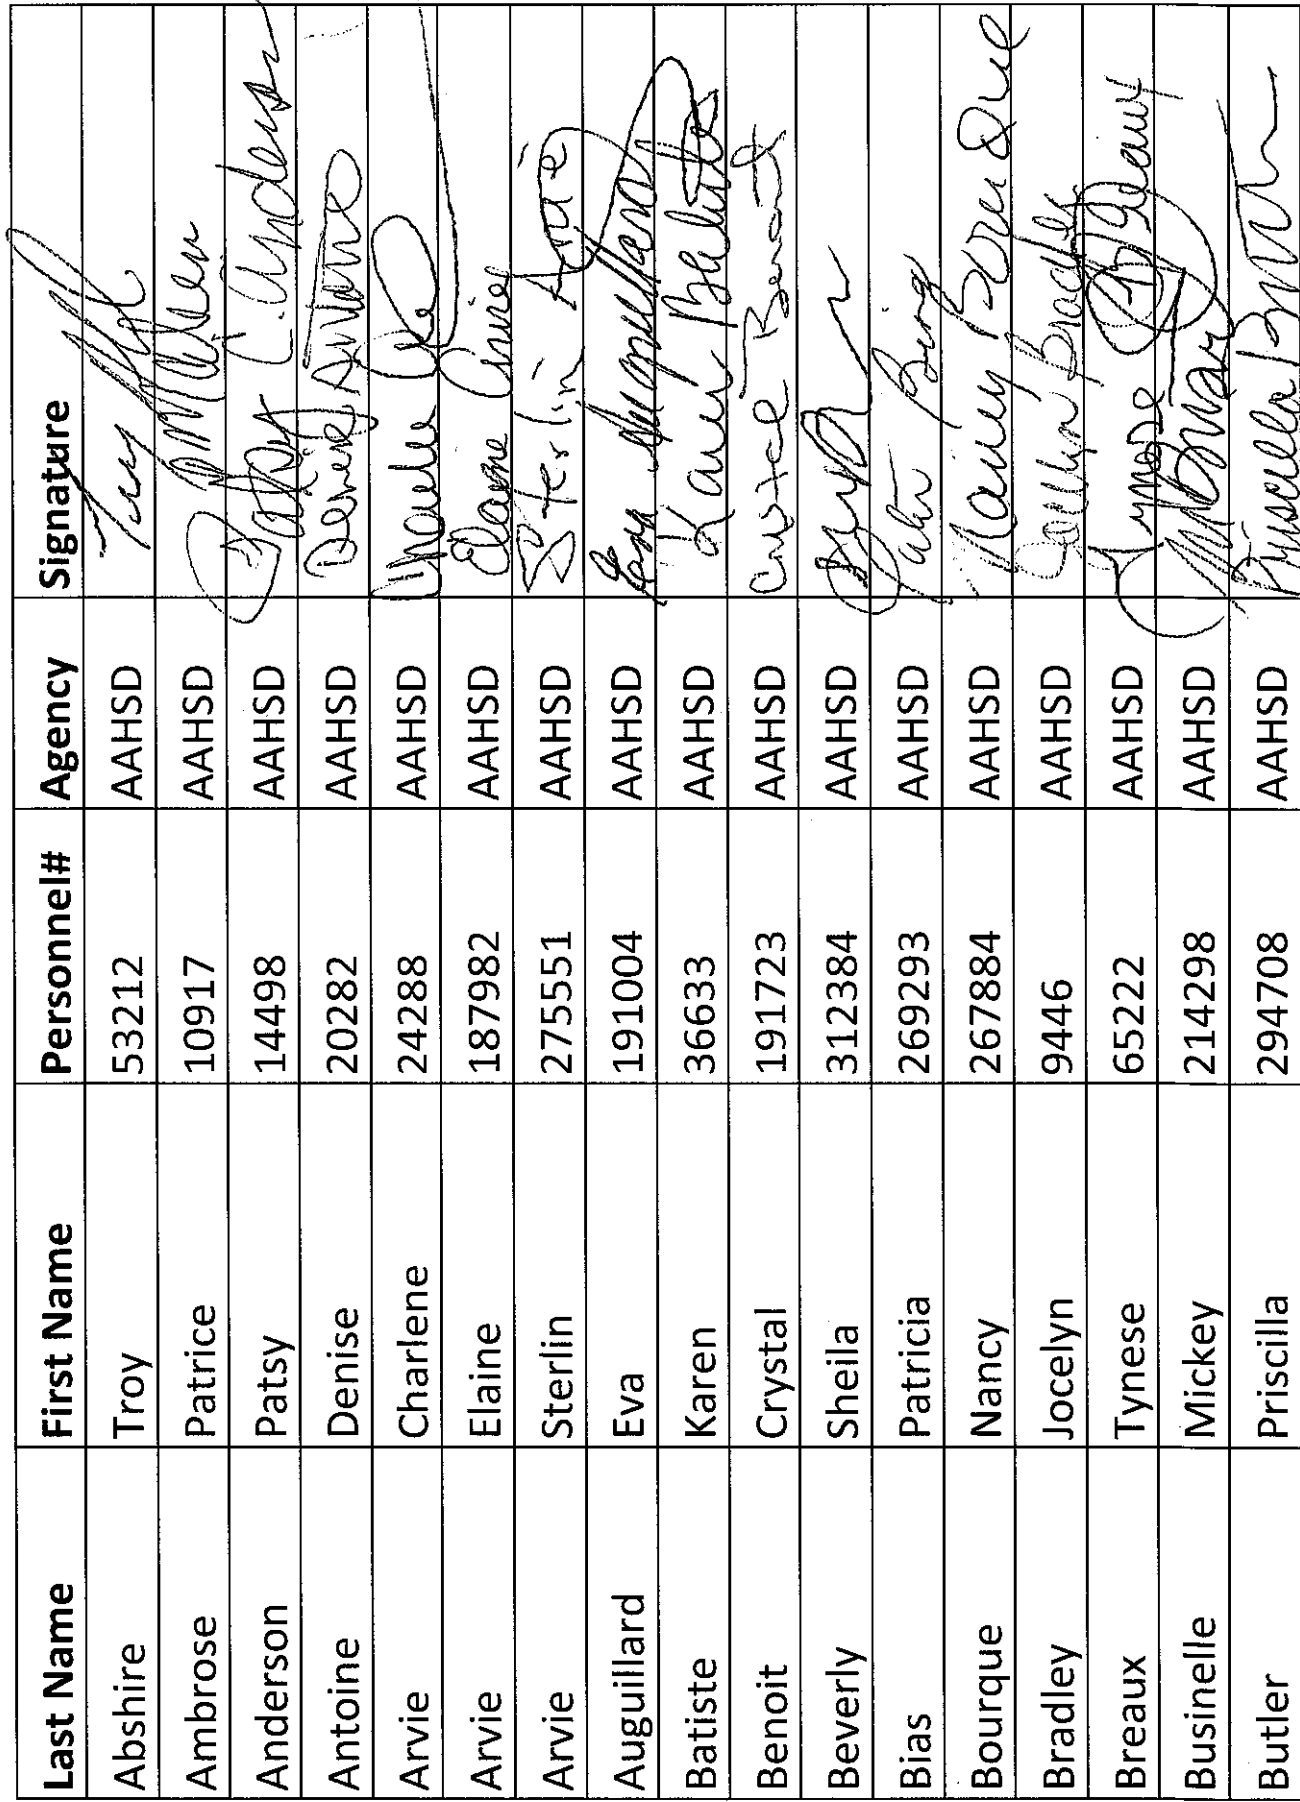 Last Name First Name Personnel# Agency Signature
Abshire Troy 53212 AAHSD Troy
Ambrose Patrice 10917 AAHSD
Anderson Patsy 14498 AAHSD Patsy C. Anderson
Antoine Denise 20282 AAHSD Denise Antoine
Arvie Charlene 24288 AAHSD Charlene
Arvie Elaine 187982 AAHSD Elaine Arvie
Arvie Sterlin 275551 AAHSD Sterlin Arvie
Auguillard Eva 191004 AAHSD Eva Auguillard
Batiste Karen 36633 AAHSD Karen Batiste
Benoit Crystal 191723 AAHSD Crystal Benoit
Beverly Sheila 312384 AAHSD
Bias Patricia 269293 AAHSD
Bourque Nancy 267884 AAHSD Nancy Bourque
Bradley Jocelyn 9446 AAHSD Jocelyn Bradley
Breaux Tynese 65222 AAHSD Tynese Breaux
Businelle Mickey 214298 AAHSD
Butler Priscilla 294708 AAHSD Priscilla